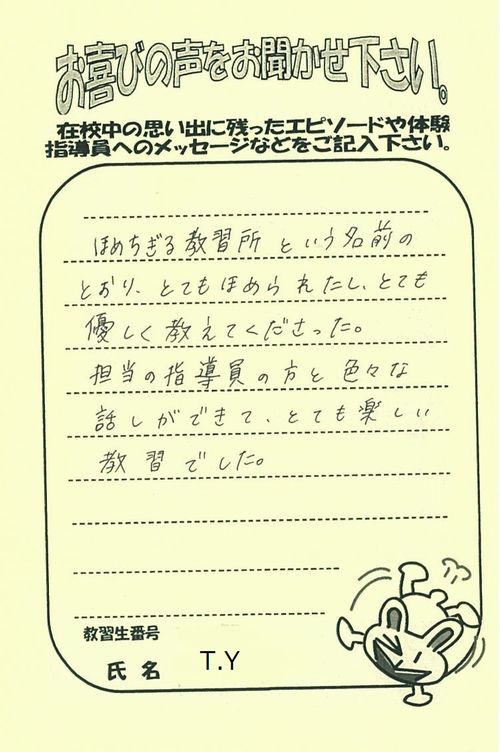 お喜びの声をお聞かせ下さい。
在校中の思い出に残ったエピソードや体験
指導員へのメッセージなどをご記入下さい。
ほめちぎる教習所という名前の
とおり、とてもほめられたし、とても
優しく教えてくださった。
担当の指導員の方と色々な
話しができて、とても楽しい
教習でした。
教習生番号
氏名 T.Y